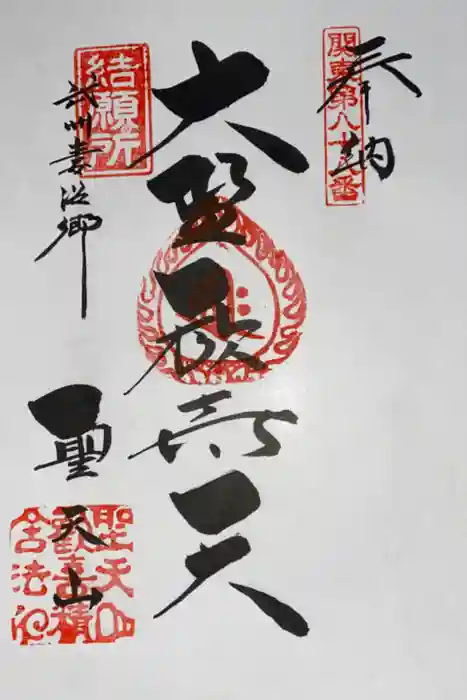 奉納
関東第八十八番
大聖歓喜天
結願所
武州妻沼郷
聖天山
聖天山
歡喜精
舎法印